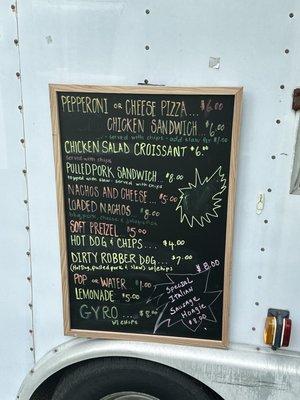 PEPPERONI OR CHEESE PIZZA... $6.00
CHICKEN SANDWICH... $6.00
served with chips - add slaw for $1.00
CHICKEN SALAD CROISSANT $6.00
served with chips
PULLED PORK SANDWICH... $8.00
topped with slaw served with chips
NACHOS AND CHEESE... $5.00
LOADED NACHOS... $8.00
bbq pork, cheese & jalapenos
SOFT PRETZEL $5.00
HOT DOG & CHIPS... $4.00
DIRTY ROBBER DOG... $7.00
(Hot Dog, pulled pork & slaw) w/chips
POP OR WATER $1.00
LEMONADE $5.00
GYRO... $8.00
w/ chips
$8.00
Special
Italian
Sausage
Hoagie
$8.00